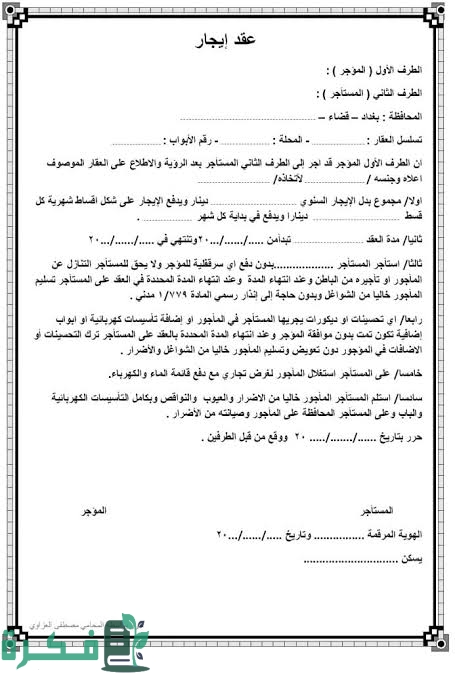 عقد إيجار
الطرف الأول ( المؤجر ) :
الطرف الثاني ( المستأجر ) :
المحافظة : بغداد – قضاء – ........................................
تسلسل العقار : ................ - المحلة : ................ - رقم الأبواب : ................
ان الطرف الأول المؤجر قد اجر إلى الطرف الثاني المستأجر بعد الرؤية والاطلاع على العقار الموصوف
اعلاه وجنسه / ........................ لأتخاذه/ ........................
اولا/ مجموع بدل الإيجار السنوي ........................ دينار ويدفع الإيجار على شكل اقساط شهرية كل
قسط ........................ دينارا ويدفع في بداية كل شهر ................ .
ثانيا/ مدة العقد ................ تبدأمن ...../....../...٢٠وتنتهي في ...../....../...٢٠
ثالثا/ استأجر المستأجر ..................بدون دفع اي سرقفلية للمؤجر ولا يحق للمستأجر التنازل عن
المأجور او تأجيره من الباطن وعند انتهاء المدة وعند انتهاء المدة المحددة في العقد على المستأجر تسليم
المأجور خاليا من الشواغل وبدون حاجة إلى إنذار رسمي المادة ١/٧٧٩ مدني .
رابعا/ اي تحسينات او ديكورات يجريها المستأجر في المأجور او إضافة تأسيسات كهربائية او ابواب
إضافية تكون تمت بدون موافقة المؤجر وعند انتهاء المدة المحددة بالعقد على المستأجر ترك التحسينات أو
الاضافات في المؤجور دون تعويض وتسليم المأجور خاليا من الشواغل والأضرار .
خامسا/ على المستأجر استغلال المأجور لغرض تجاري مع دفع قائمة الماء والكهرباء.
سادسا/ استلم المستأجر المأجور خاليا من الاضرار والعيوب والنواقص وبكامل التأسيسات الكهربائية
والباب وعلى المستأجر المحافظة على المأجور وصيانته من الأضرار .
حرر بتاريخ ....../......./..... ٢٠ ووقع من قبل الطرفين .
المستأجر المؤجر
الهوية المرقمة ................ وتاريخ ...../....../...٢٠
يسكن ..............................
المحامي مصطفى العزاوي
فكرة